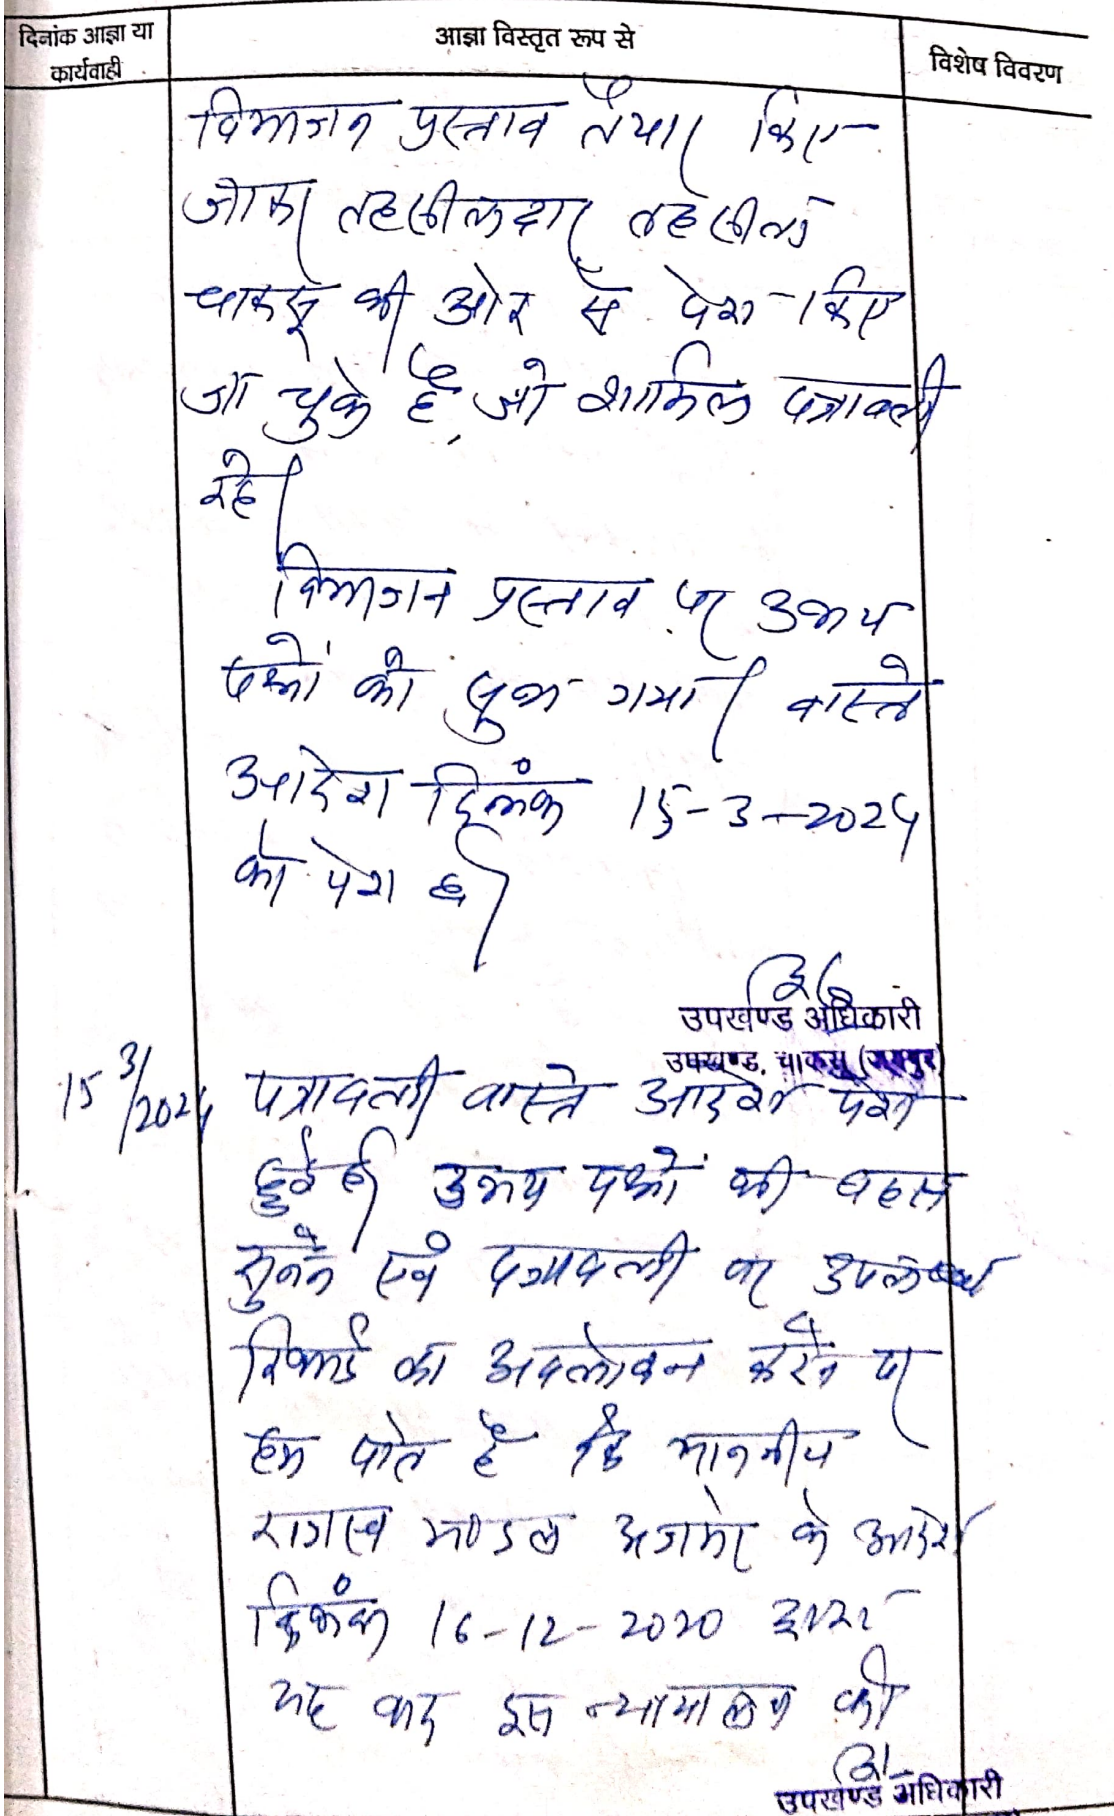 दिनांक आज्ञा या
कार्यवाही
आज्ञा विस्तृत रूप से
विशेष विवरण
विभाजन प्रस्ताव तैयार किए
जाकर तहसीलदार तहसील
चाकसू की ओर से पेश किए
जा चुके है, जो शामिल पत्रावली
रहे।
विभाजन प्रस्ताव पर उभय
पक्षों को सुना गया। वास्ते
आदेश दिनांक 15-3-2024
को पेश हो।
उपखण्ड अधिकारी
उपखण्ड, चाकसू (जयपुर)
15/3/2024
पत्रावली वास्ते आदेश पेश
हुई है। उभय पक्षों की बहस
सुनने एवं पत्रावली पर उपलब्ध
रिकार्ड का अवलोकन करने पर
हम पाते है कि माननीय
राजस्व मण्डल अजमेर के आदेश
दिनांक 16-12-2020 द्वारा
यह वाद इस न्यायालय को
उपखण्ड अधिकारी